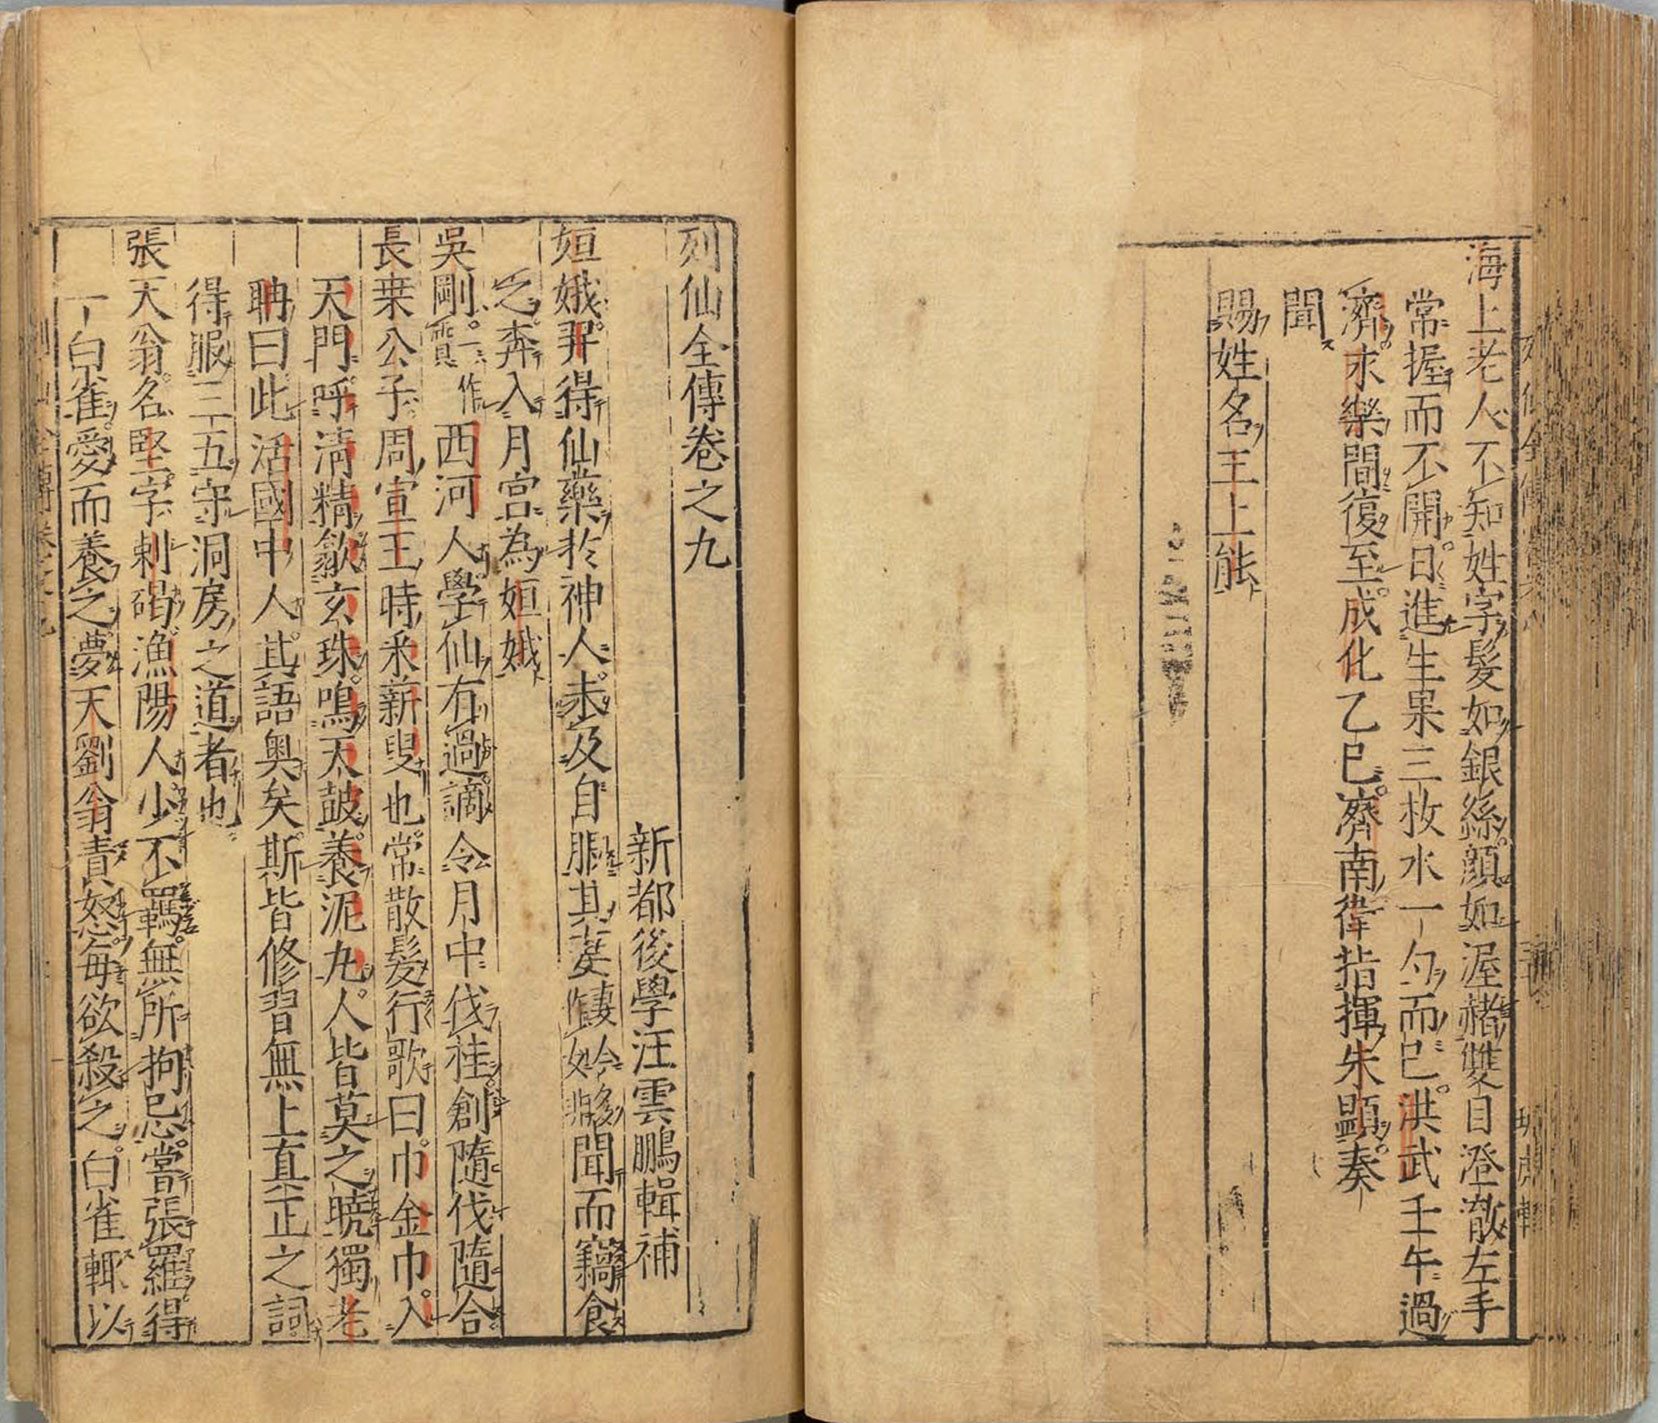 海上老人不知姓字髮如銀絲顔如渥赭雙目澄澈左手
常握而不開日進生果三枚水一勺而已洪武壬午過
濟求樂間復至成化乙巳濟南衛指揮朱顯奏
聞
賜姓名王士能
列仙全傳卷之九
新都後學汪雲鵬輯補
姮娥羿得仙藥於神人未及自服其妻聞而竊食
之奔入月宮為姮娥
吳剛一作質西河人學仙有過謫令月中伐桂創隨伐隨合
長桒公子周宣王時采薪叟也常散髮行歌曰巾金巾入
天門呼清精歙玄珠鳴天皷養泥丸人皆莫之曉獨老
聃曰此活國中人其語奥矣斯皆修習無上真正之詞
得服三五守洞房之道者也
張天翁名堅字刺碣漁陽人少不羈無所拘忌嘗張羅得
一白雀愛而養之夢天劉翁責怒每欲殺之白雀輒以